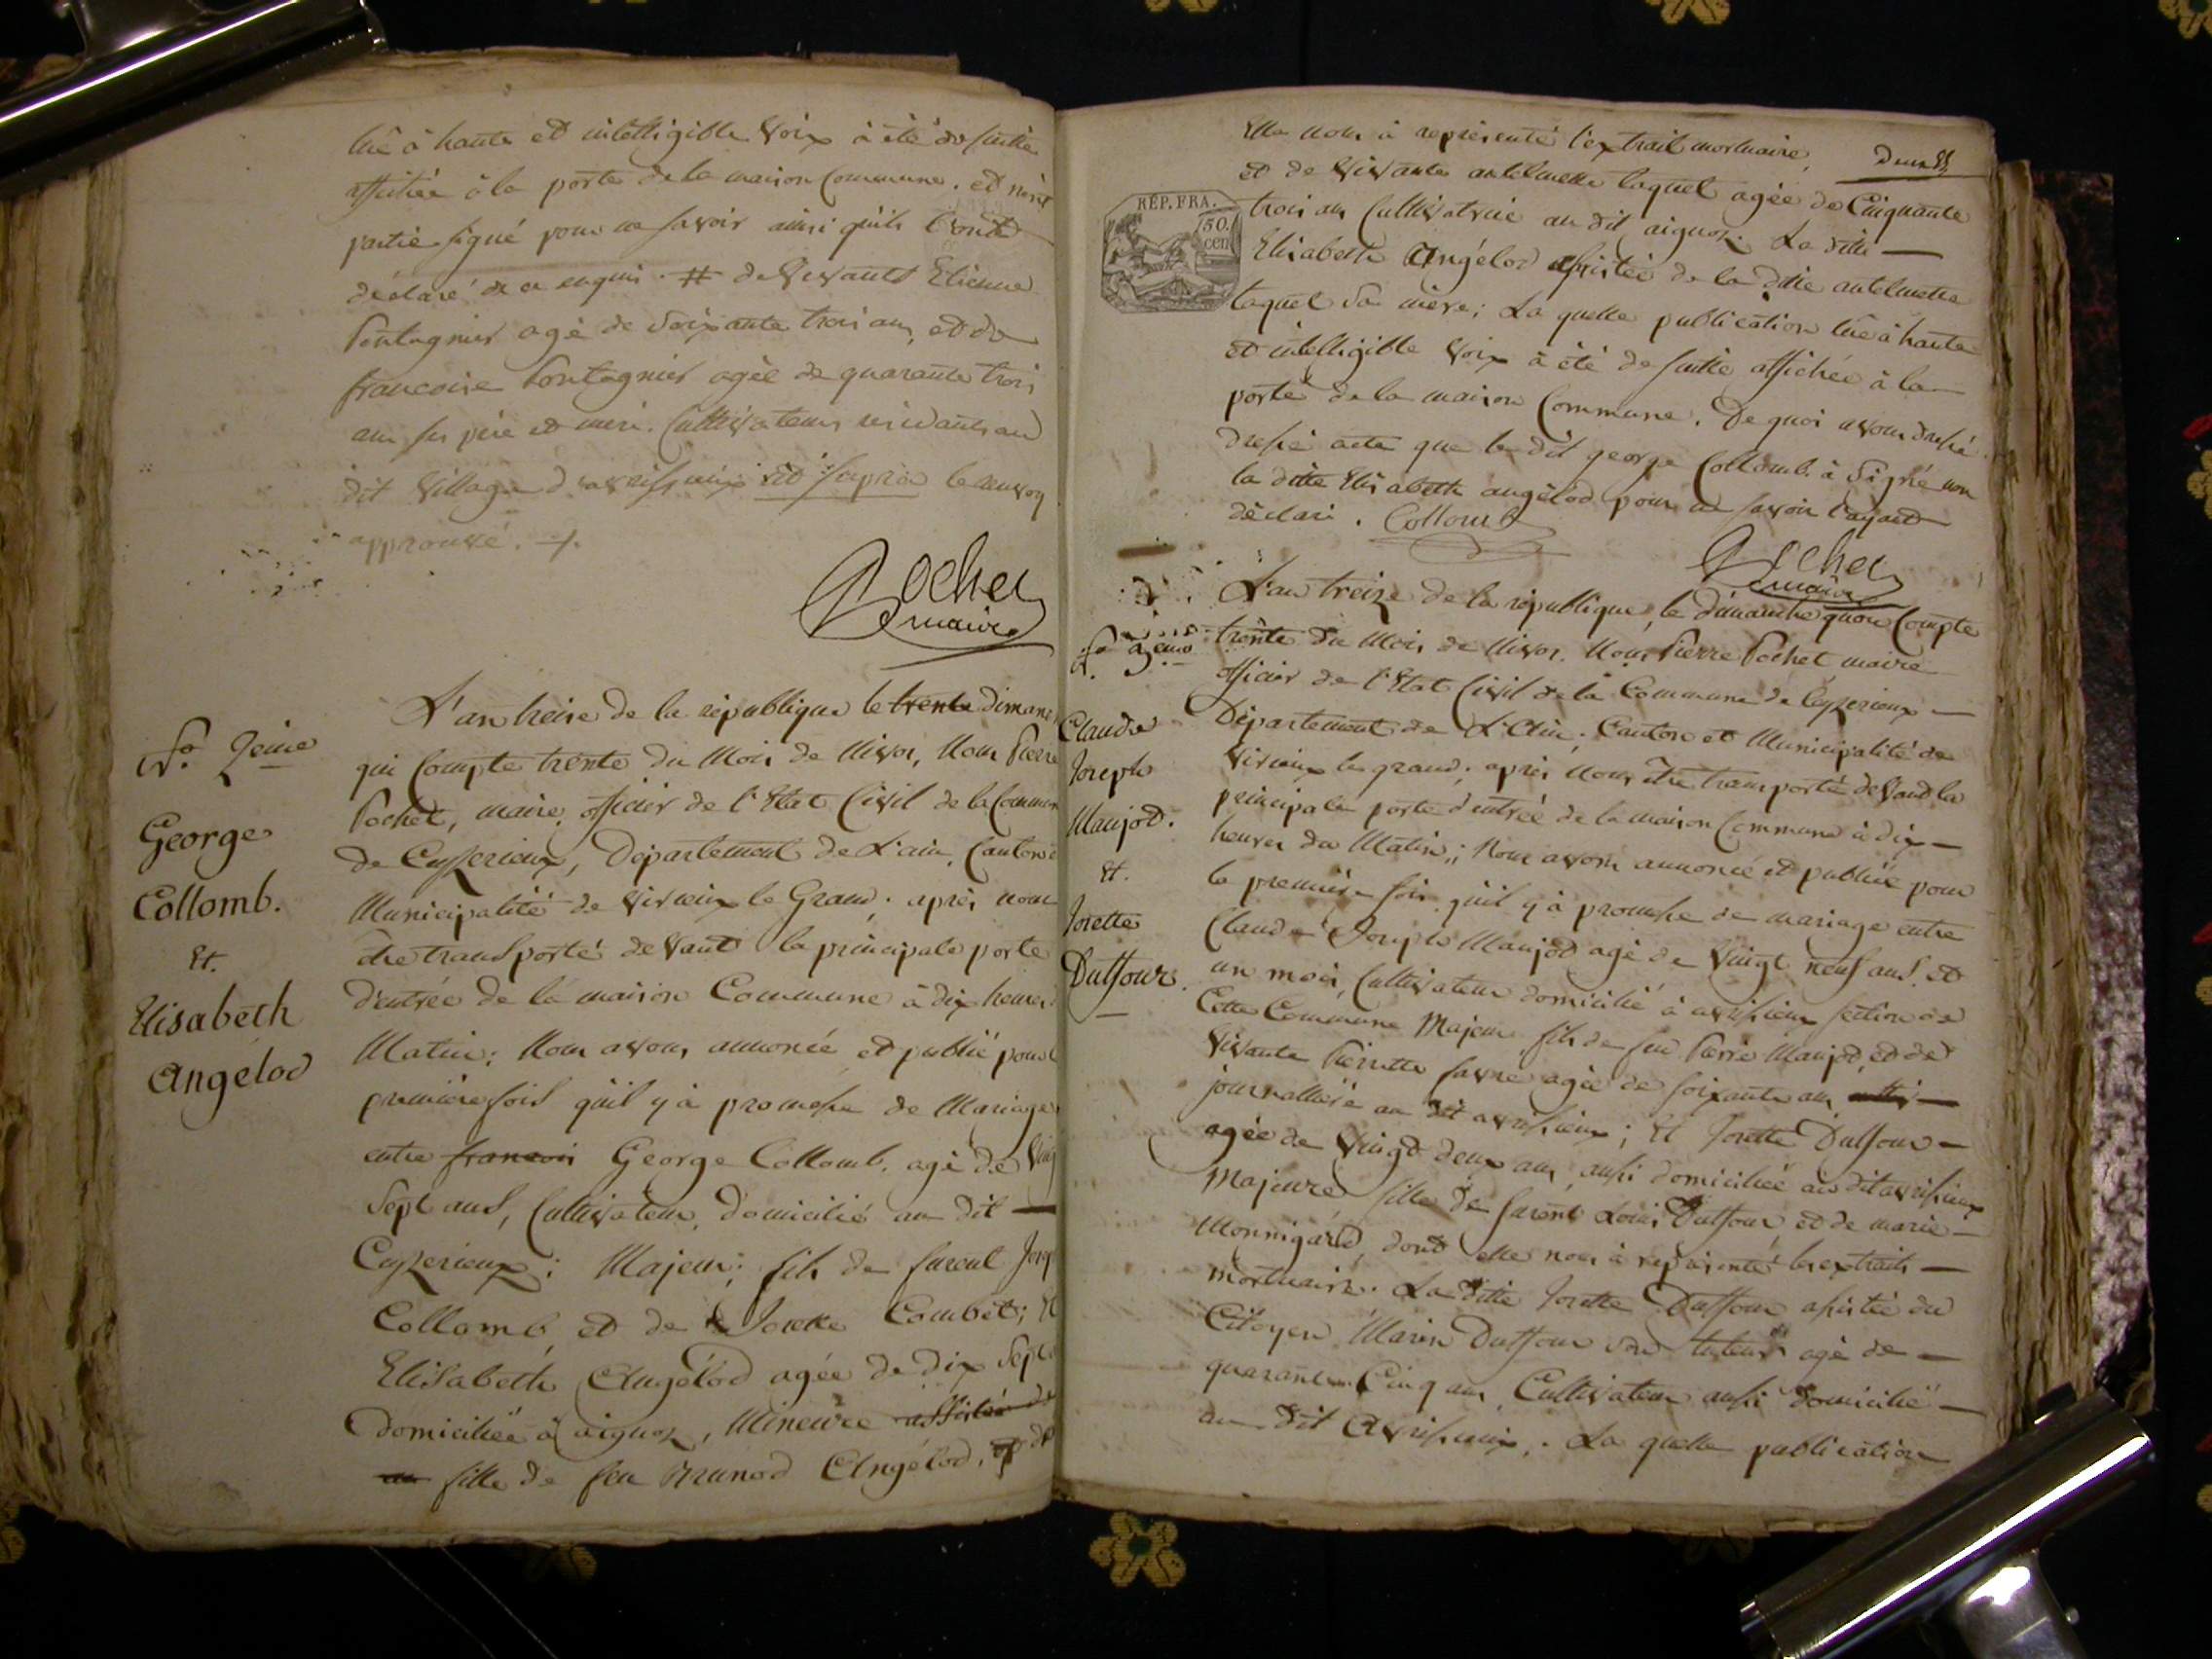 lüe à haute et intelligible voix à été de suitte
affichée à la porte de la maison Commune. et
partie signé pour ne savoir ainsi qu'ils l'ont
déclaré de ce enquis. # de vivants Etienne
Pontagnier agé de soixante trois ans, et de
francoise Pontagnier agée de quarante trois
ans ses père et mère. Cultivateurs résidants au
dit village d'avrissieux
approuvé.
Pochet
maire
Nº. 2eme
George
Collomb.
Et.
Elisabeth
Angélod
L'an treize de la république le trente dimanc
qui Compte trente du Mois de Nivos, Nous Pierre
Pochet, maire, officier de l'Etat Civil de la Commun
de Cuzerieux, Département de L'ain, Canton e
Municipalité de Virieux le Grand; après nous
être transporté devant la principale porte
d'entrée de la maison Commune à dix heures
Matin; Nous avons annoncée et publié pour l
première fois qu'il y à promesse de Mariage
entre francois George Collomb. agé de Ving
Sept ans, Cultivateur, domicilié au dit
Cuzerieux; Majeur; fils de fureul Josep
Collomb, et de Josette Combet; Et
Elisabeth Angélod agée de dix Sept
domiciliée à aignoz, Mineure assistée de
fille de feu Brunod Angélod,
Elle nous à représenté l'extrait mortuaire,
Deux
et de vivante antelmette taquet agée de Cinquante
REP. FRA.
50.
cen
trois ans Cultivatrice au dit aignoz. La ditte
Elisabeth Angélod assistée de la ditte antelmette
taquet sa mère; La quelle publication lüe à haute
et intelligible voix à été de suitte affichée à la
porte de la maison Commune. De quoi avons dressé
dressé acte que le dit george Collomb à Signé non
la ditte Elisabeth angélod pour ne savoir l'ayant
déclaré. Collomb
Pochet
maire
Nº 3eme
Claude
Joseph
Maujod.
Et.
Josette
Dutfour.
L'an treize de la république, le dimanche qu'on Compte
trente du Mois de Nivos. Nous Pierre Pochet maire
officier de l'Etat Civil de la Commune de Cuyzerieux
Département de L'Ain, Canton et Municipalité de
Virieux le grand; après nous être transporté devant la
principale porte d'entrée de la maison Commune à dix
heures du Matin; Nous avons annoncée et publiée pour
la première fois qu'il y à promesse de mariage entre
Claude Joseph Maujod agé de Vingt neuf ans et
un mois, Cultivateur domicilié à avrissieux section de
Cette Commune Majeur fils de feu Pierre Maujod, et de
vivante Pierrette favre agée de soixante ans
journalliere au dit avrissieux; Et Josette Dutfour
agée de Vingt deux ans aussi domiciliée au dit avrissieux
Majeure fille de furent Louis Dutfour, et de marie
Monnigard, dont elle nous à représenté les extraits
mortuaires. La ditte Josette Dutfour assistée du
Citoyen Marin Dutfour son tuteur agé de
quarante Cinq ans Cultivateur aussi domicilié
au dit Avrissieux. La quelle publication